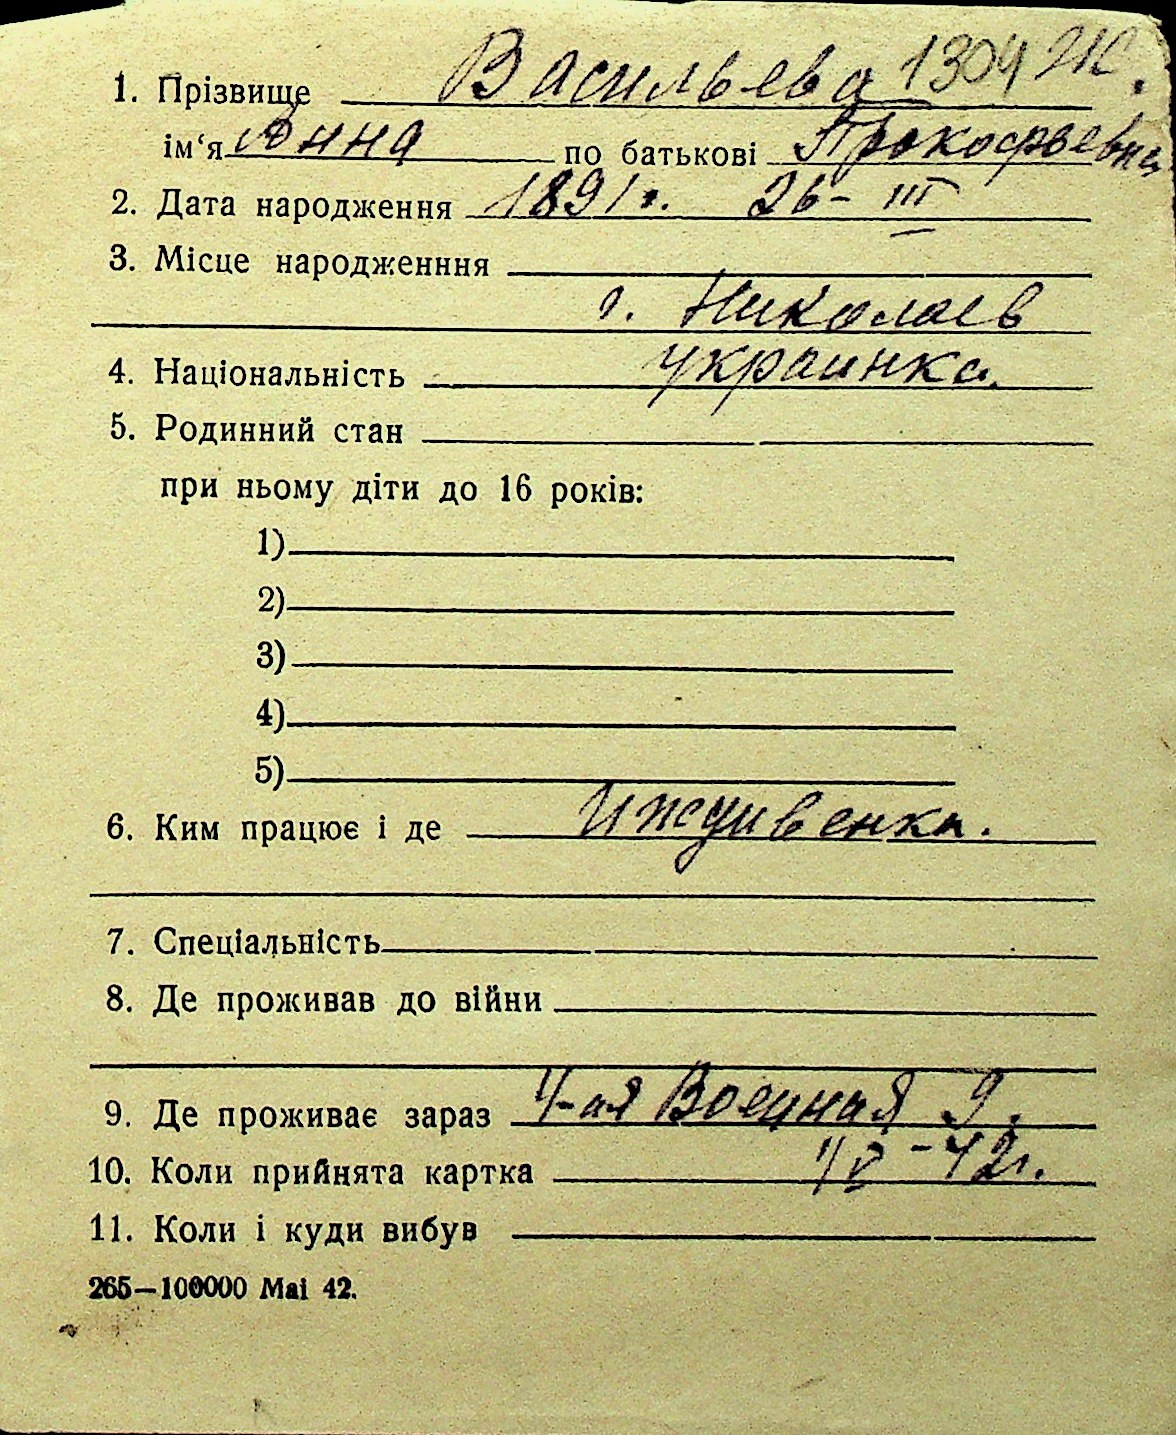 1. Прізвище Васильева 1304 Ж.
ім‘я Анна по батькові Прокофьевна
2. Дата народження 1891г. 26-III
3. Місце народженння
г. Николаев
4. Національність украинка.
5. Родинний стан
при ньому діти до 16 років:
1)
2)
3)
4)
5)
6. Ким працює і де Иждивенка.
7. Спеціальність
8. Де проживав до війни
9. Де проживає зараз 4-ая Военная 9.
10. Коли прийнята картка -42г.
11. Коли і куди вибув
265—100000 Mai 42.